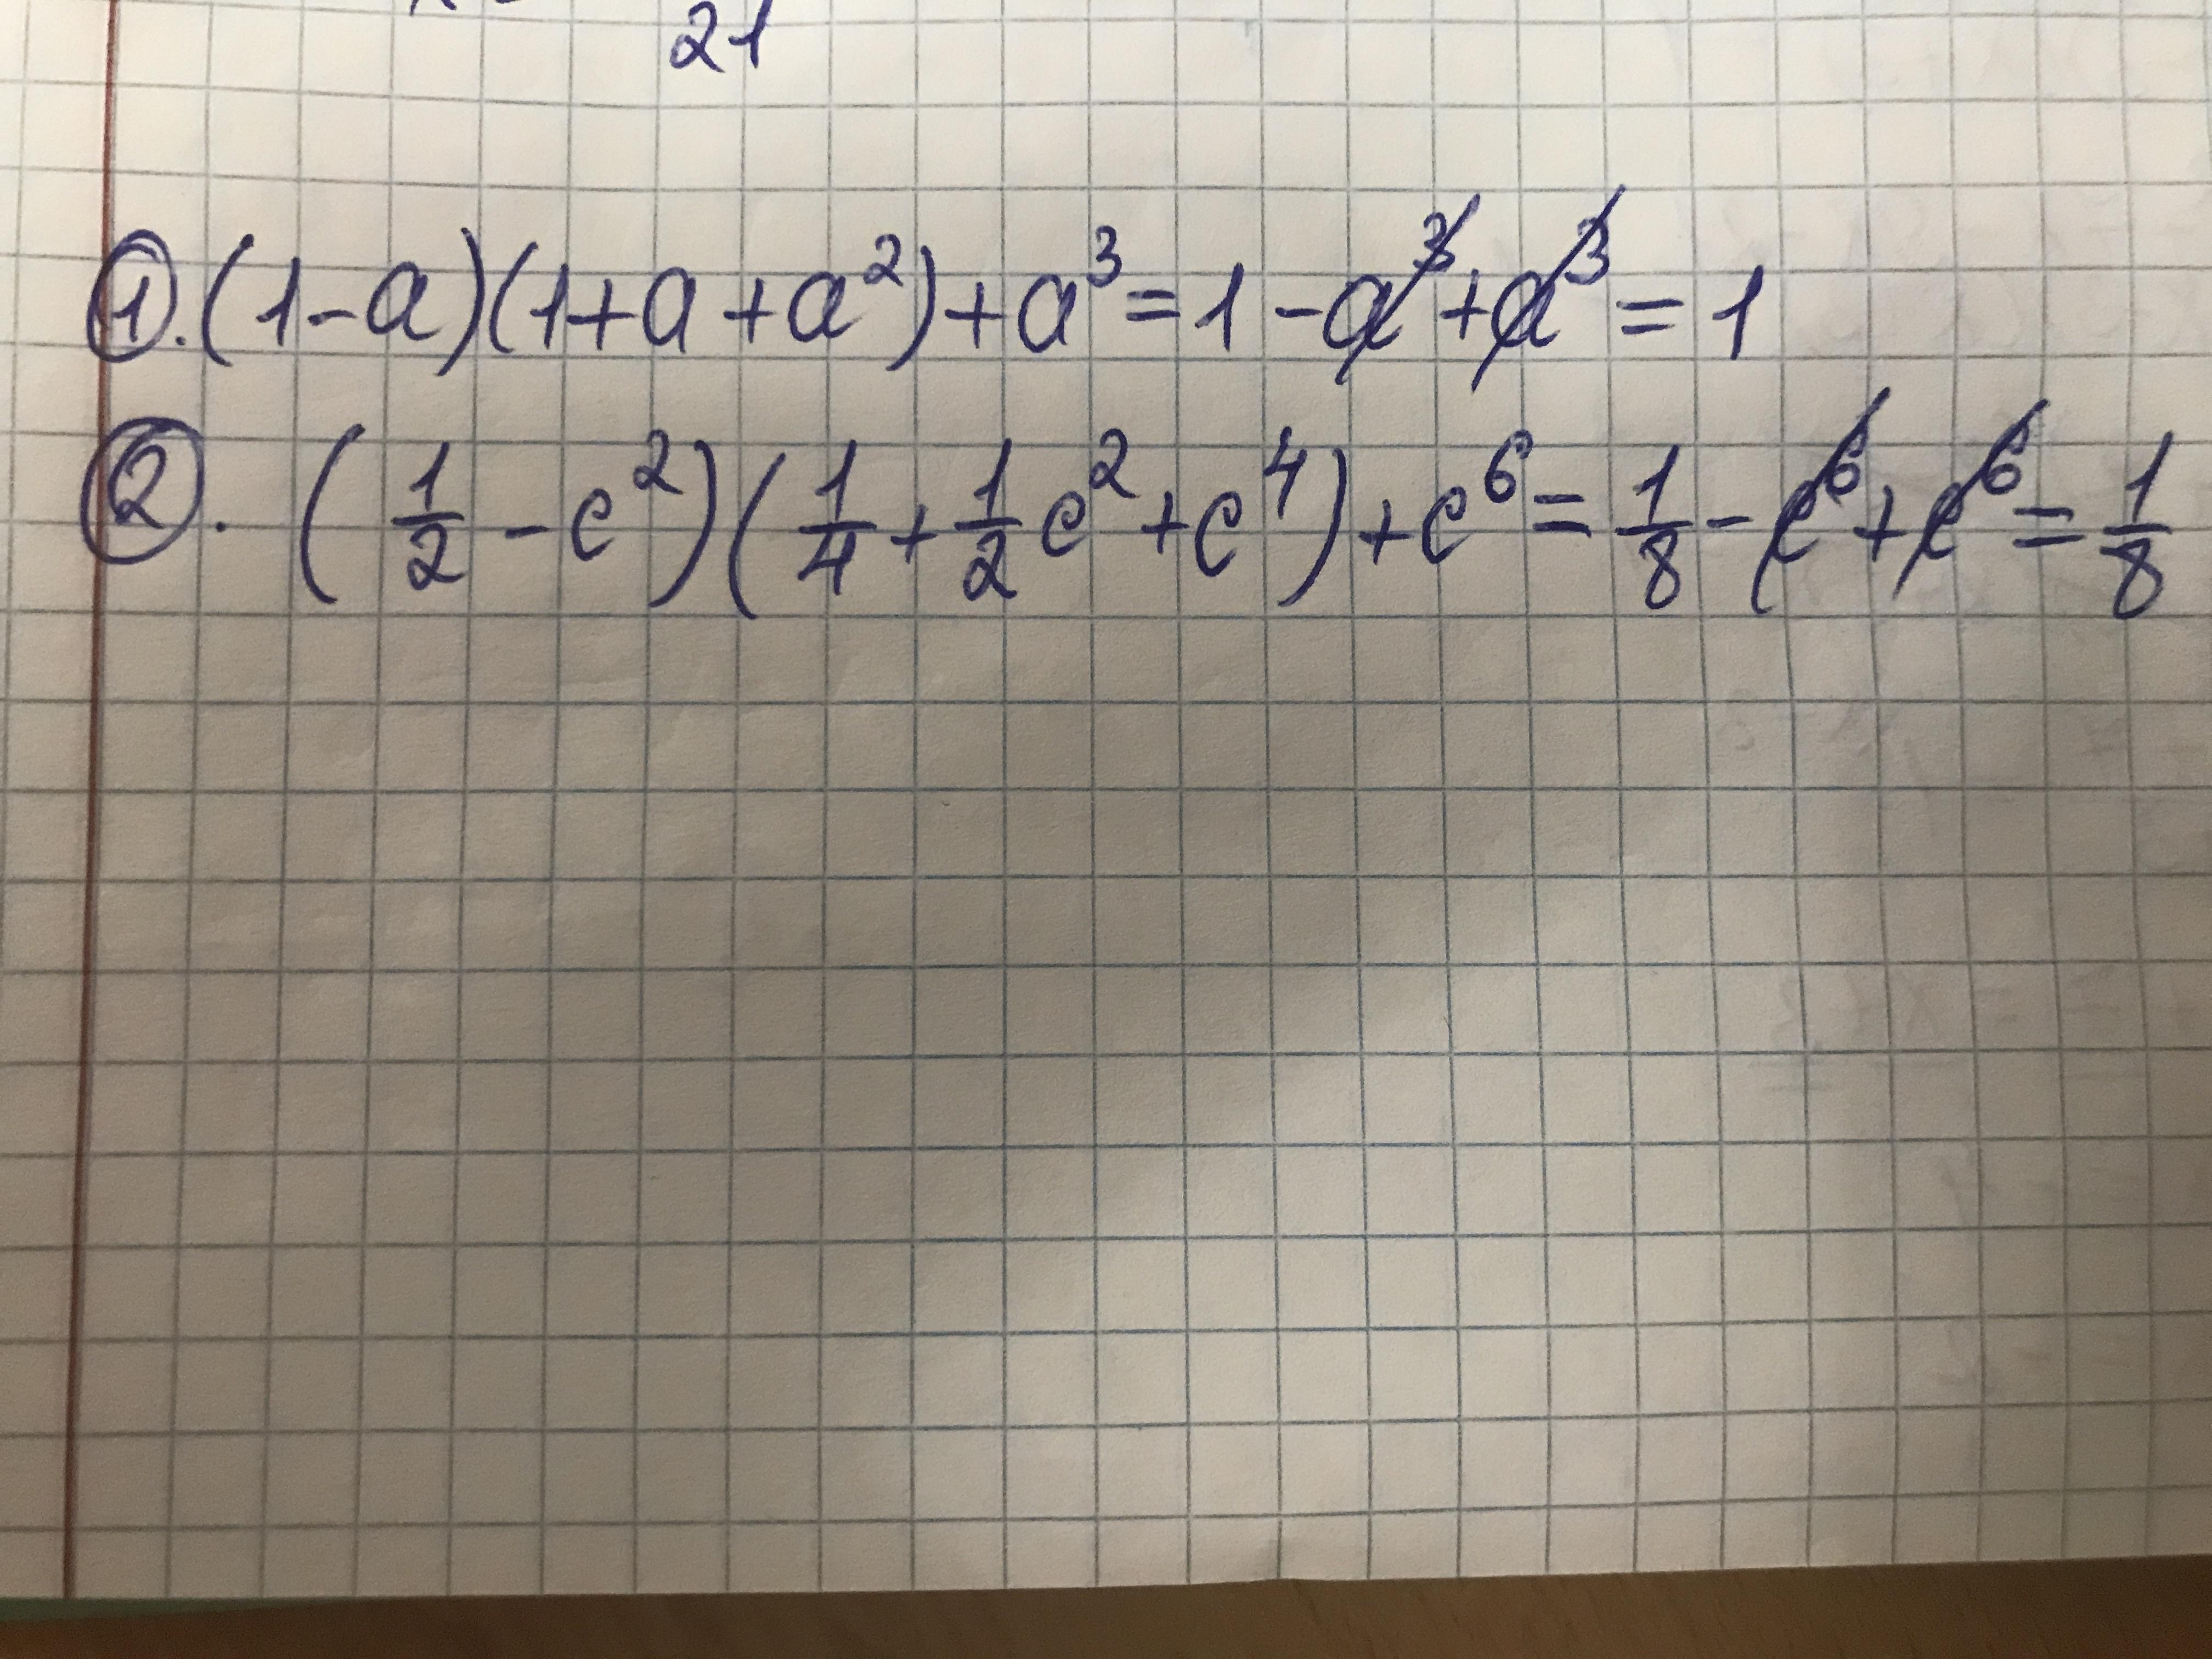 21
①. (1-a)(1+a+a²)+a³=1-a³+a³=1
②. (1/2-c²)(1/4+1/2c²+c⁴)+c⁶=1/8-c⁶+c⁶=1/8